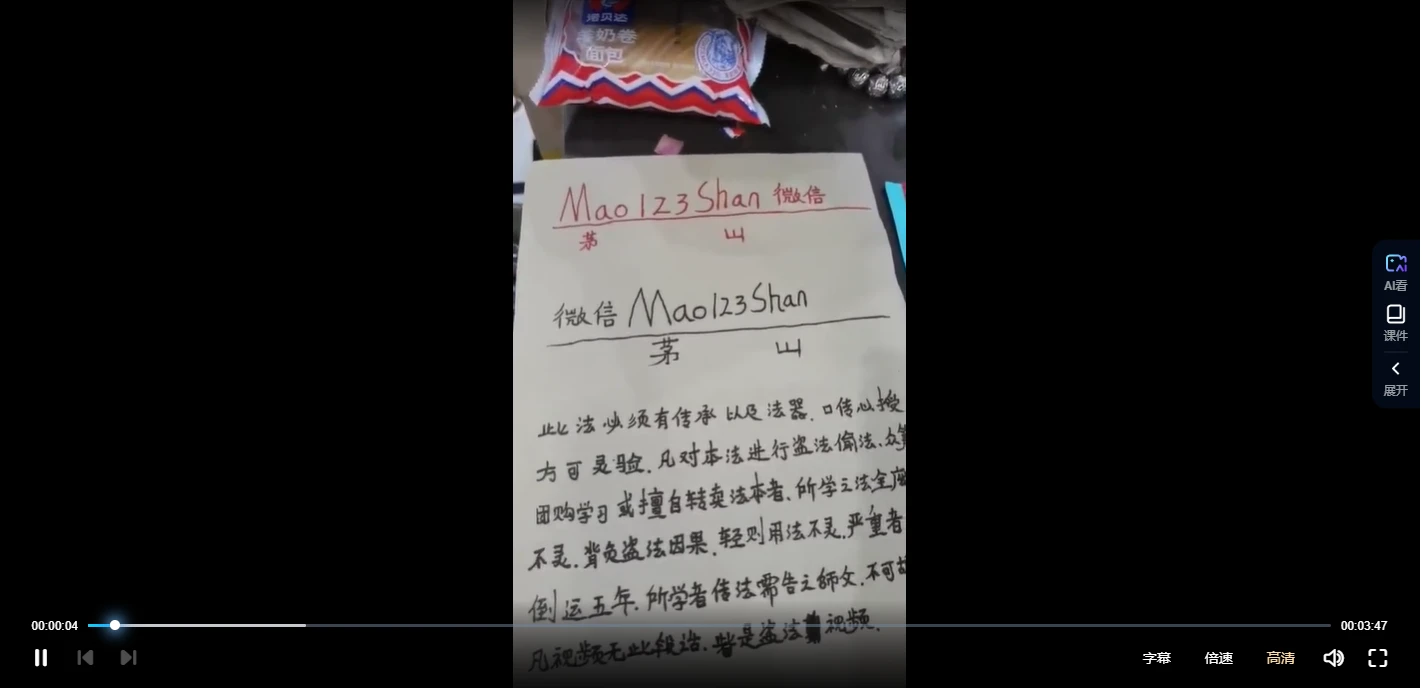 诺贝达
羊奶卷
面包
Mao123Shan 微信
茅 山
微信 Mao123Shan
茅 山
此法必须有传承以及法器.口传心授
方可灵验.凡对本法进行盗法偷法、众筹
团购学习或擅自转卖法本者、所学之法全
不灵.背负盗法因果.轻则用法不灵.严重者
倒运五年.所学者传法需告之师父.不可
凡视频无此段话.皆是盗法视频.
AI看
课件
展开
00:00:04
00:03:47
字幕
倍速
高清